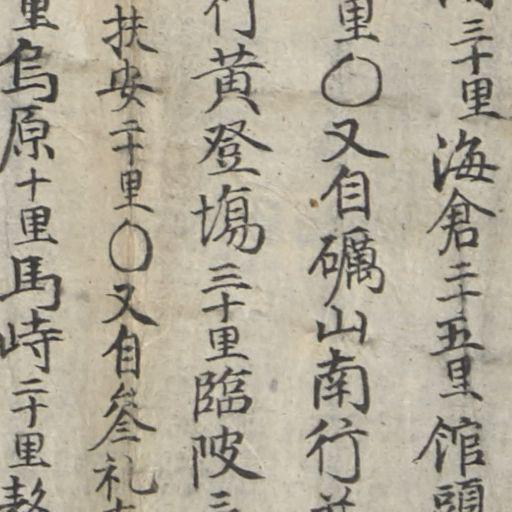 三十里海倉二十五里館頭
里〇又自礪山南行
行黄登塲三十里臨陂三
扶安二十里〇又自叅礼
里烏原十里馬峙二十里